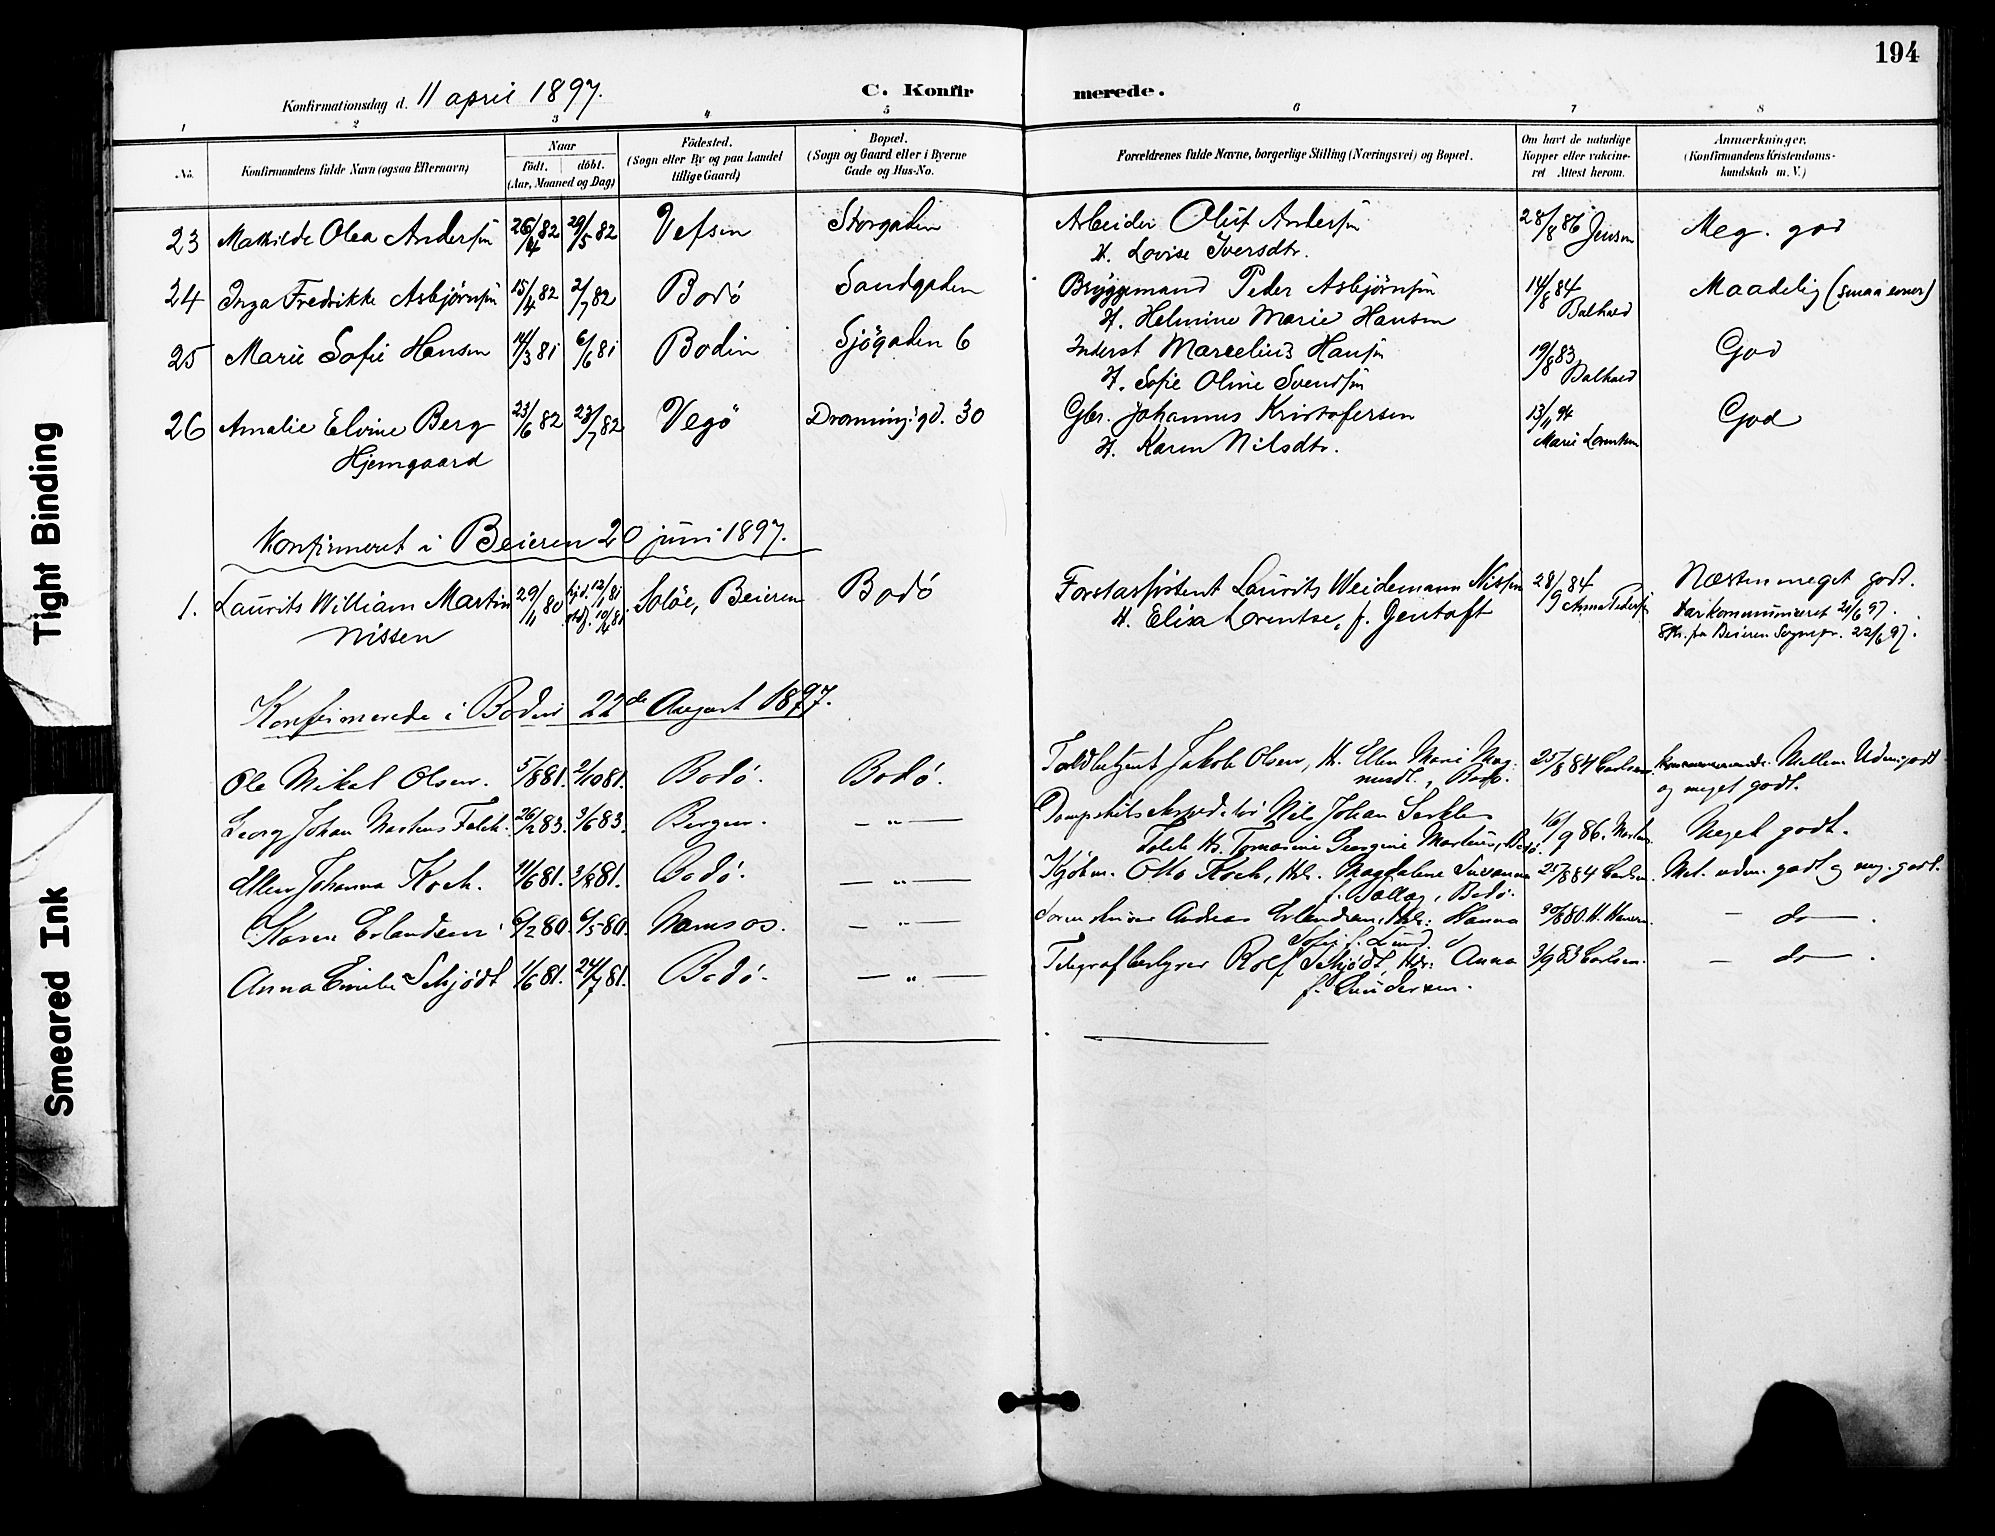 194
Konfirmationsdag d. 11 april 1897.
C. Konfirmerede.
1 2 3 4 5 6 7 8
No.
Konfirmandens fulde Navn (ogsaa Efternavn)
Naar
Födt. döbt.
(Aar, Maaned og Dag)
Födested.
(Sogn eller By og paa Landet
tillige Gaard)
Bopæl.
(Sogn og Gaard eller i Byerne
Gade og Hus-No.
Forældrenes fulde Navne, borgerlige Stilling (Næringsvei) og Bopæl.
Om havt de naturlige
Kopper eller vakcine-
ret Attest herom.
Anmærkninger.
(Konfirmandens Kristendoms-
kundskab m. V.)
23 Mathilde Olea Andersen 26/4 82 29/5 82 Vefsen Storgaden Arbeider Oluf Andersen 28/8 86 Jensen Meg. god
H. Lovise Iversdtr.
24 Inga Fredrikke Asbjørnsen 15/4 82 2/7 82 Bodö Sandgaden Bryggemand Peder Asbjørnsen 14/8 84 Maadelig (smaa evner)
H. Helmine Marie Hansen
25 Marie Sofie Hansen 14/3 81 6/6 81 Bodin Sjögaden 6 Inderst Marcelius Hansen 19/8 83 God
H. Sofie Oline Svendsen
26 Amalie Elvine Berg 23/6 82 23/7 82 Vegö Dronning: gd. 30 Gbr. Johannes Kristofersen 13/11 94 God
Hjemgaard H. Karen Nilsdtr. Marie Lorentsen
Konfirmeret i Beieren 20 juni 1897.
1. Laurits William Martin 29/11 80 hjd. 12/1 81 Soløe, Beieren Bodö Forstassistent Laurits Weidemann Nissen 28/9 84 Næsten meget godt.
Nissen stdf. 10/4 81 H. Elisa Lorentse, f. Gentoft Anna Pedersen Har kommuniceret 20/6 97.
fra Beieren Sognepr. 22/6 97.
Konfirmerede i Bodin 22de August 1897.
Ole Mikal Olsen. 5/8 81. 2/10 81. Bodö. Bodö. Toldbetjent Jakob Olsen, H. Ellen Marie Mag- 25/8 84 Carlsen. Mellem Udm. godt
og meget godt.
Georg Johan Martens Falch. 26/2 83. 3/6 83. Bergen. — " — Dampskibsekspeditör Nils Johan 16/9 86. Meget godt.
Falch H. Tomasine Georgine
Ellen Johanna Koch. 11/6 81. Bodö. — " — Kjöbm. Otto Koch, Magdalene Susanna 25/8 84 Carlsen. Mel. udm. godt og meg. godt.
Bodö.
Karen Erlandsen 6/2 80. 6/5 80. Namsos. — " — Sorenskriver Andreas Erlandsen, Hanna 80. H. Hansen. — do — .
Sofie f. Lund.
Anna Emilie Schjödt 1/6 81. 24/7 81. Bodö. — " — Telegrafbestyrer Rolf Schjödt, Anna 3/9 83 Carlsen. — do — .
f. Gundersen.
Tight Binding
Smeared Ink